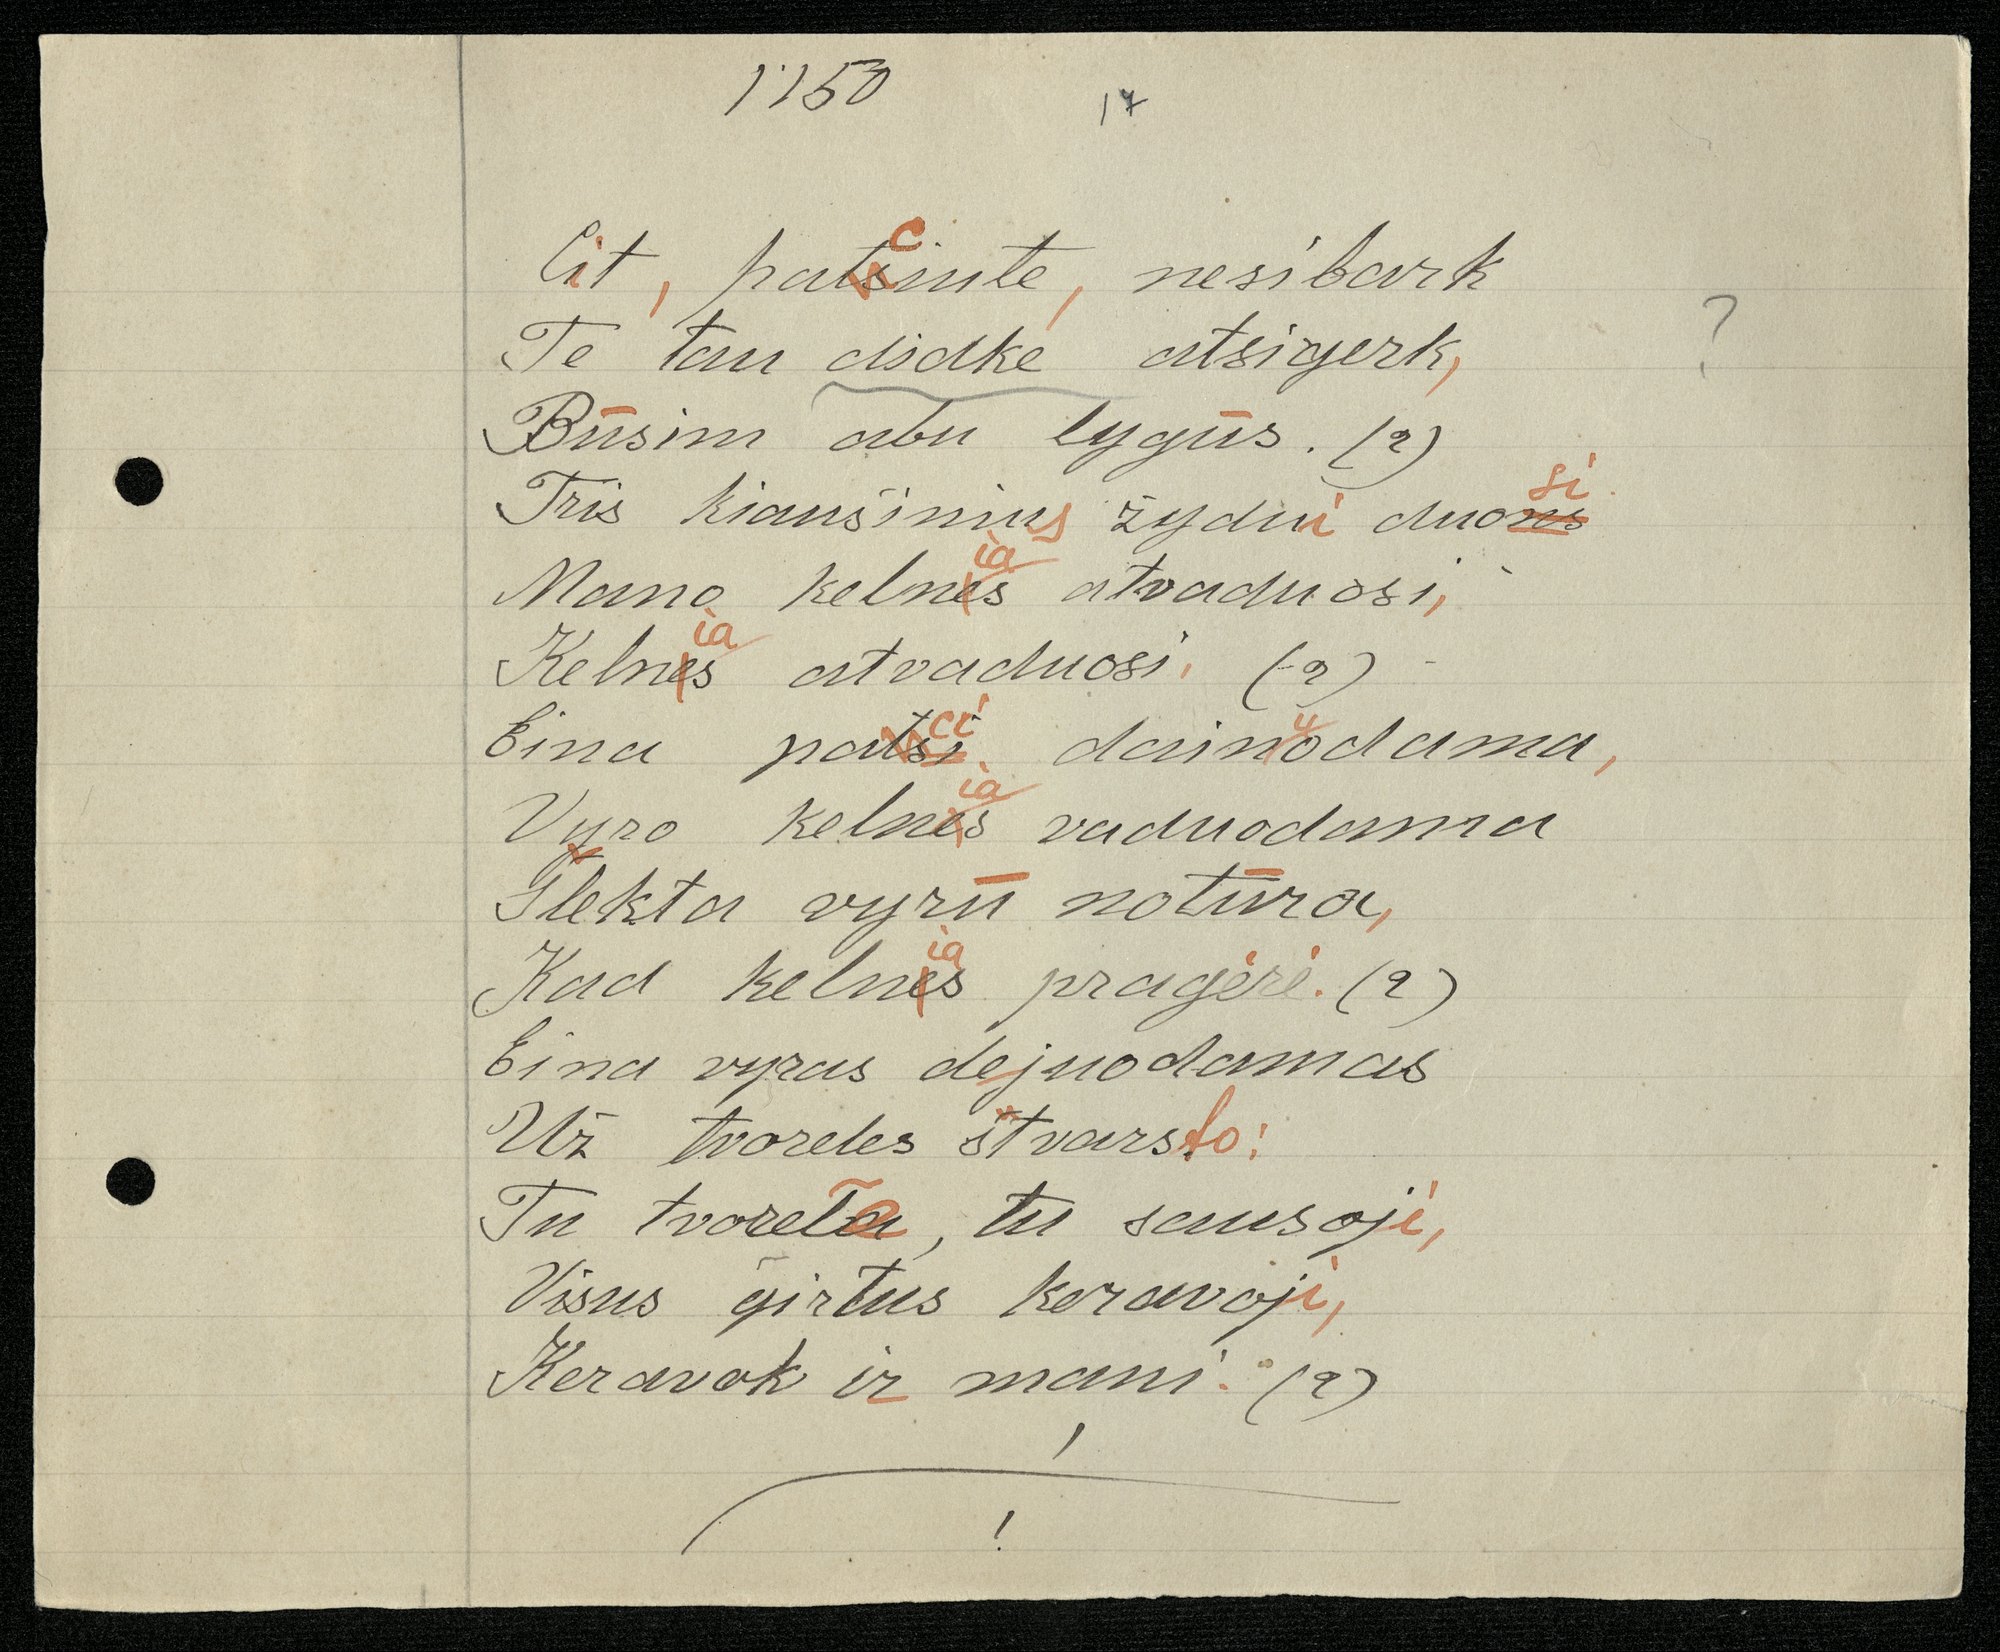 1150 17
Cit, pacinte, nesibark
Te tau didke atsigerk, ?
Būsim abu lygūs. (2)
Tris kiaušinius žydui duosi
Mano kelnias atvaduosi,
Kelnias atvaduosi. (2)
Eina paci dainudama,
Vyro kelnias vaduodama
Šlekta vyrū notūra,
Kad kelnias pragėrė. (2)
Eina vyras dejuodamas
Už tvoreles stvarsto:
Tu tvorela, tu sausoji,
Visus girtus keravoji,
Keravok ir mani. (2)
!